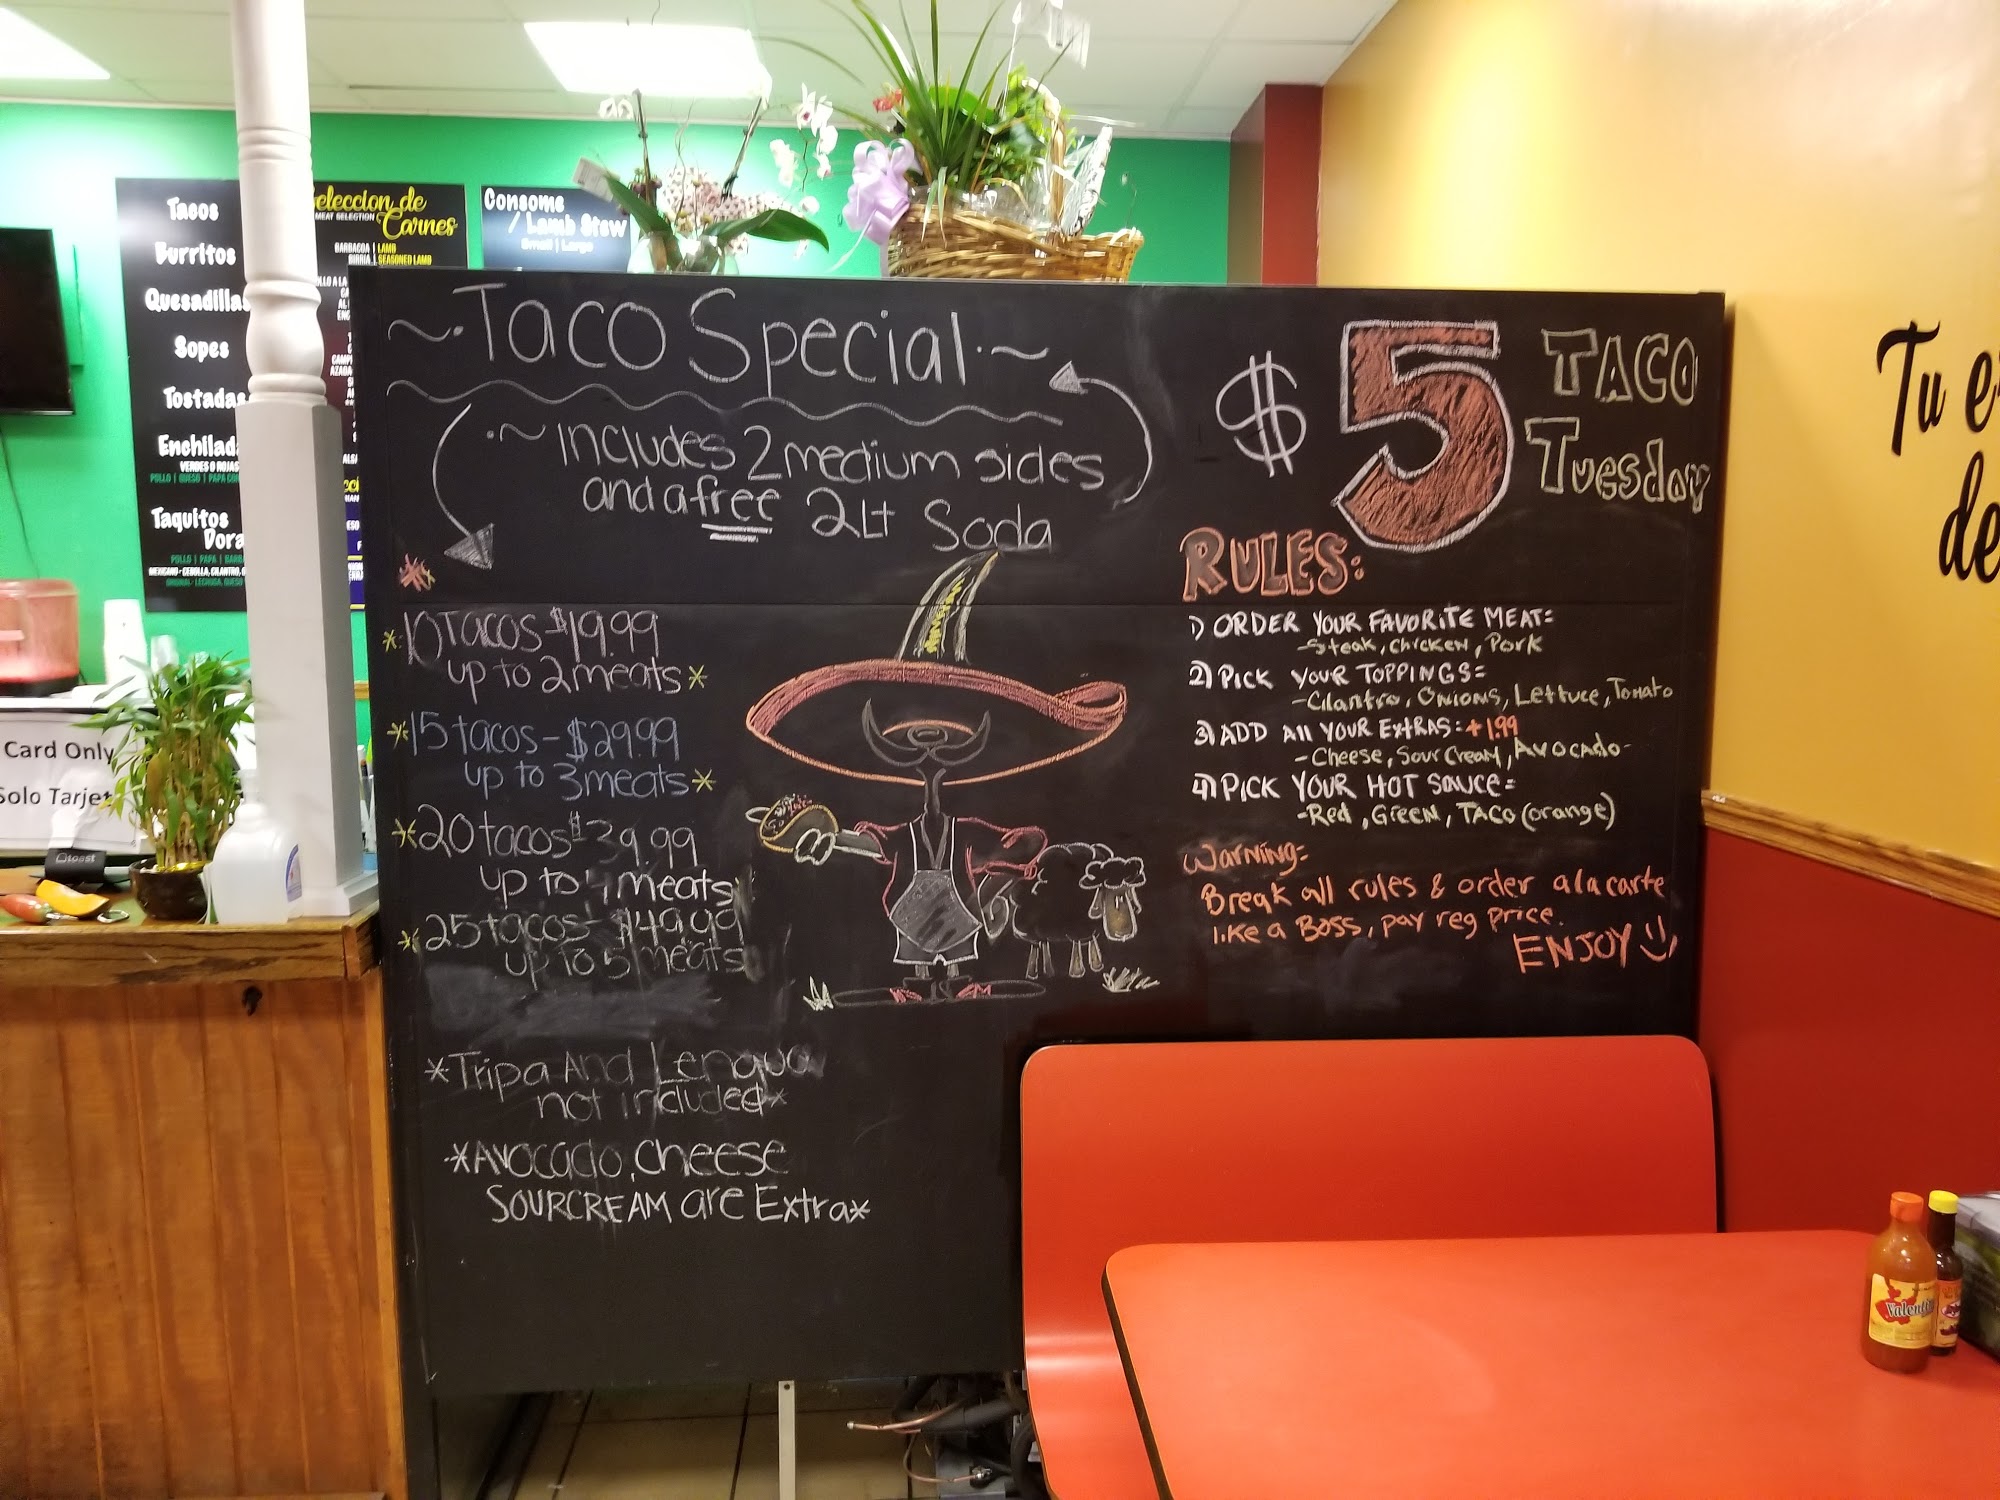 Tacos
Burritos
Quesadillas
Sopes
Tostadas
VERDES O ROJAS
POLLO | QUESO | PAPA
Taquitos
POLLO | PAPA
Seleccion de
MEAT SELECTION
Carnes
BARBACOA | LAMB
BIRRIA | SEASONED LAMB
Consome
/ Lamb Stew
Small | Large
Card Only
Solo
toast
~·Taco Special·~
·~Includes 2 medium sides
and a free 2Lt Soda
*10 Tacos-$19.99
up to 2 meats*
*15 tacos-$29.99
up to 3 meats*
*20 tacos $39.99
up to 4 meats
*25 tacos-$49.99
up to 5 meats
*Tripa And Lengua
not included*
*Avocado, Cheese
SOURCREAM are Extra*
$5 TACO
Tuesday
RULES:
1) ORDER YOUR FAVORITE MEAT:
-Steak, Chicken, Pork
2) PICK YOUR TOPPINGS:
-Cilantro, Onions, Lettuce, Tomato
3) ADD All YOUR EXTRAS: +1.99
-Cheese, Sour Cream, Avocado-
4) PICK YOUR HOT SAUCE:
-Red, Green, TACO (orange)
Warning:
Break all rules & order a la carte
like a Boss, pay reg price.
ENJOY
Tu
de